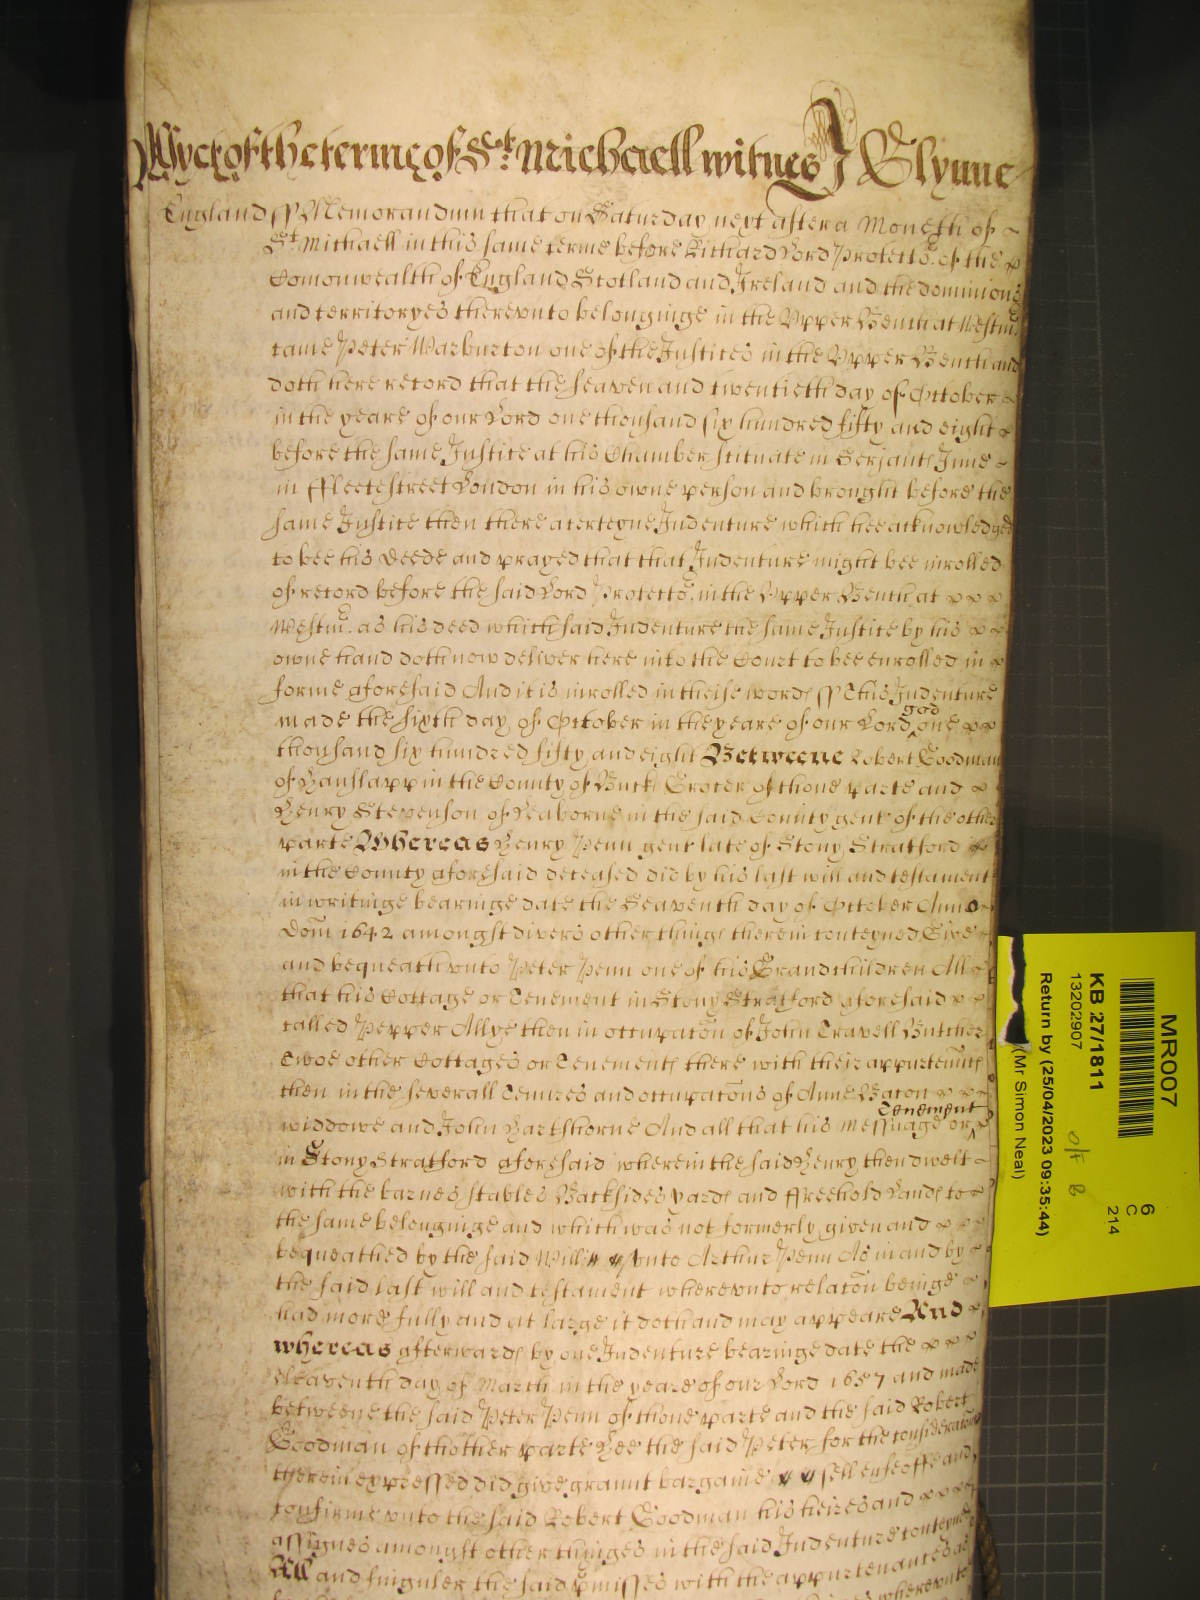 Yet of the terme of Sct. Michaell witnes J Glynne
England ss Memorandum that on Saturday next after a Moneth of
St Michaell in this same terme before Richard Lord Protector. of the
Comonwealth of England Scotland and Ireland and the dominions
and territoryes therevnto belonginge in the Vpper Bench at Westmr.
came Peter Warburton one of the Justices in the Vpper Bench and
doth here record that the seaven and twentieth day of October
in the yeare of our Lord one thousand six hundred fifty and eight
before the same Justice at his Chamber scituate in Serjants Inne
in ffleetestreet London in his owne person and brought before the
same Justice then there a certeyne Indenture which hee acknowledged
to bee his Deede and prayed that that Indenture might bee inrolled
of record before the said Lord Protector. in the Vpper Bench at
Westmr. as his deed which said Indenture the same Justice by his
owne hand doth now deliver here into the Court to bee enrolled in
forme aforesaid And it is inrolled in theise words ss This Indenture
made the sixth day of October in the yeare of our Lord god one
thousand six hundred fifty and eight Betweene Robert Goodman
of Hanslapp in the County of Buck Grocer of thone parte and
Henry Stevenson of in the said County gent of the other
parte Whereas Henry Penn gent late of Stony Stratford
in the County aforesaid deceased did by his last will and testament
in writinge bearinge date the Seaventh day of October Anno
Dom 1642 amongst divers other things therein conteyned Give
and bequeath vnto Peter Penn one of his Grandchildren All
that his Cottage or Tenement in Stony Stratford aforesaid
called Pepper Allye then in occupacon of John Travell Butcher
Twoe other Cottages or Tenements there with their appurtenncs
then in the severall Tenures and occupacons of Anne Beaton
widdowe and John Hartshorne And all that his Messuage or Tenement
in Stony Stratford aforesaid wherein the said Henry then dwelt
with the barnes stables Backsides yards and ffreehold Lands to
the same belonginge and which was not formerly given and
bequeathed by the said Will vnto Arthur Penn As in and by
the said last will and testament wherevnto relacon beinge
had more fully and at large it doth and may appeare And
whereas afterwards by one Indenture bearinge date the
eleaventh day of March in the yeare of our Lord 1657 and made
betweene the said Peter Penn of thone parte and the said Robert
Goodman of thother parte Hee the said Peter for the consideracon
therein expressed did give graunt bargaine sell enfeoffe and
confirme vnto the said Robert Goodman his heires and
assignes amongst other thinges in the said Indenture conteyned
All and singuler the said pmisses with the appurtenances as
wherevnto
MR007
6
C
214
KB 27/1811
13202907
o/f B
Return by (25/04/2023 09:35:44)
(Mr Simon Neal)